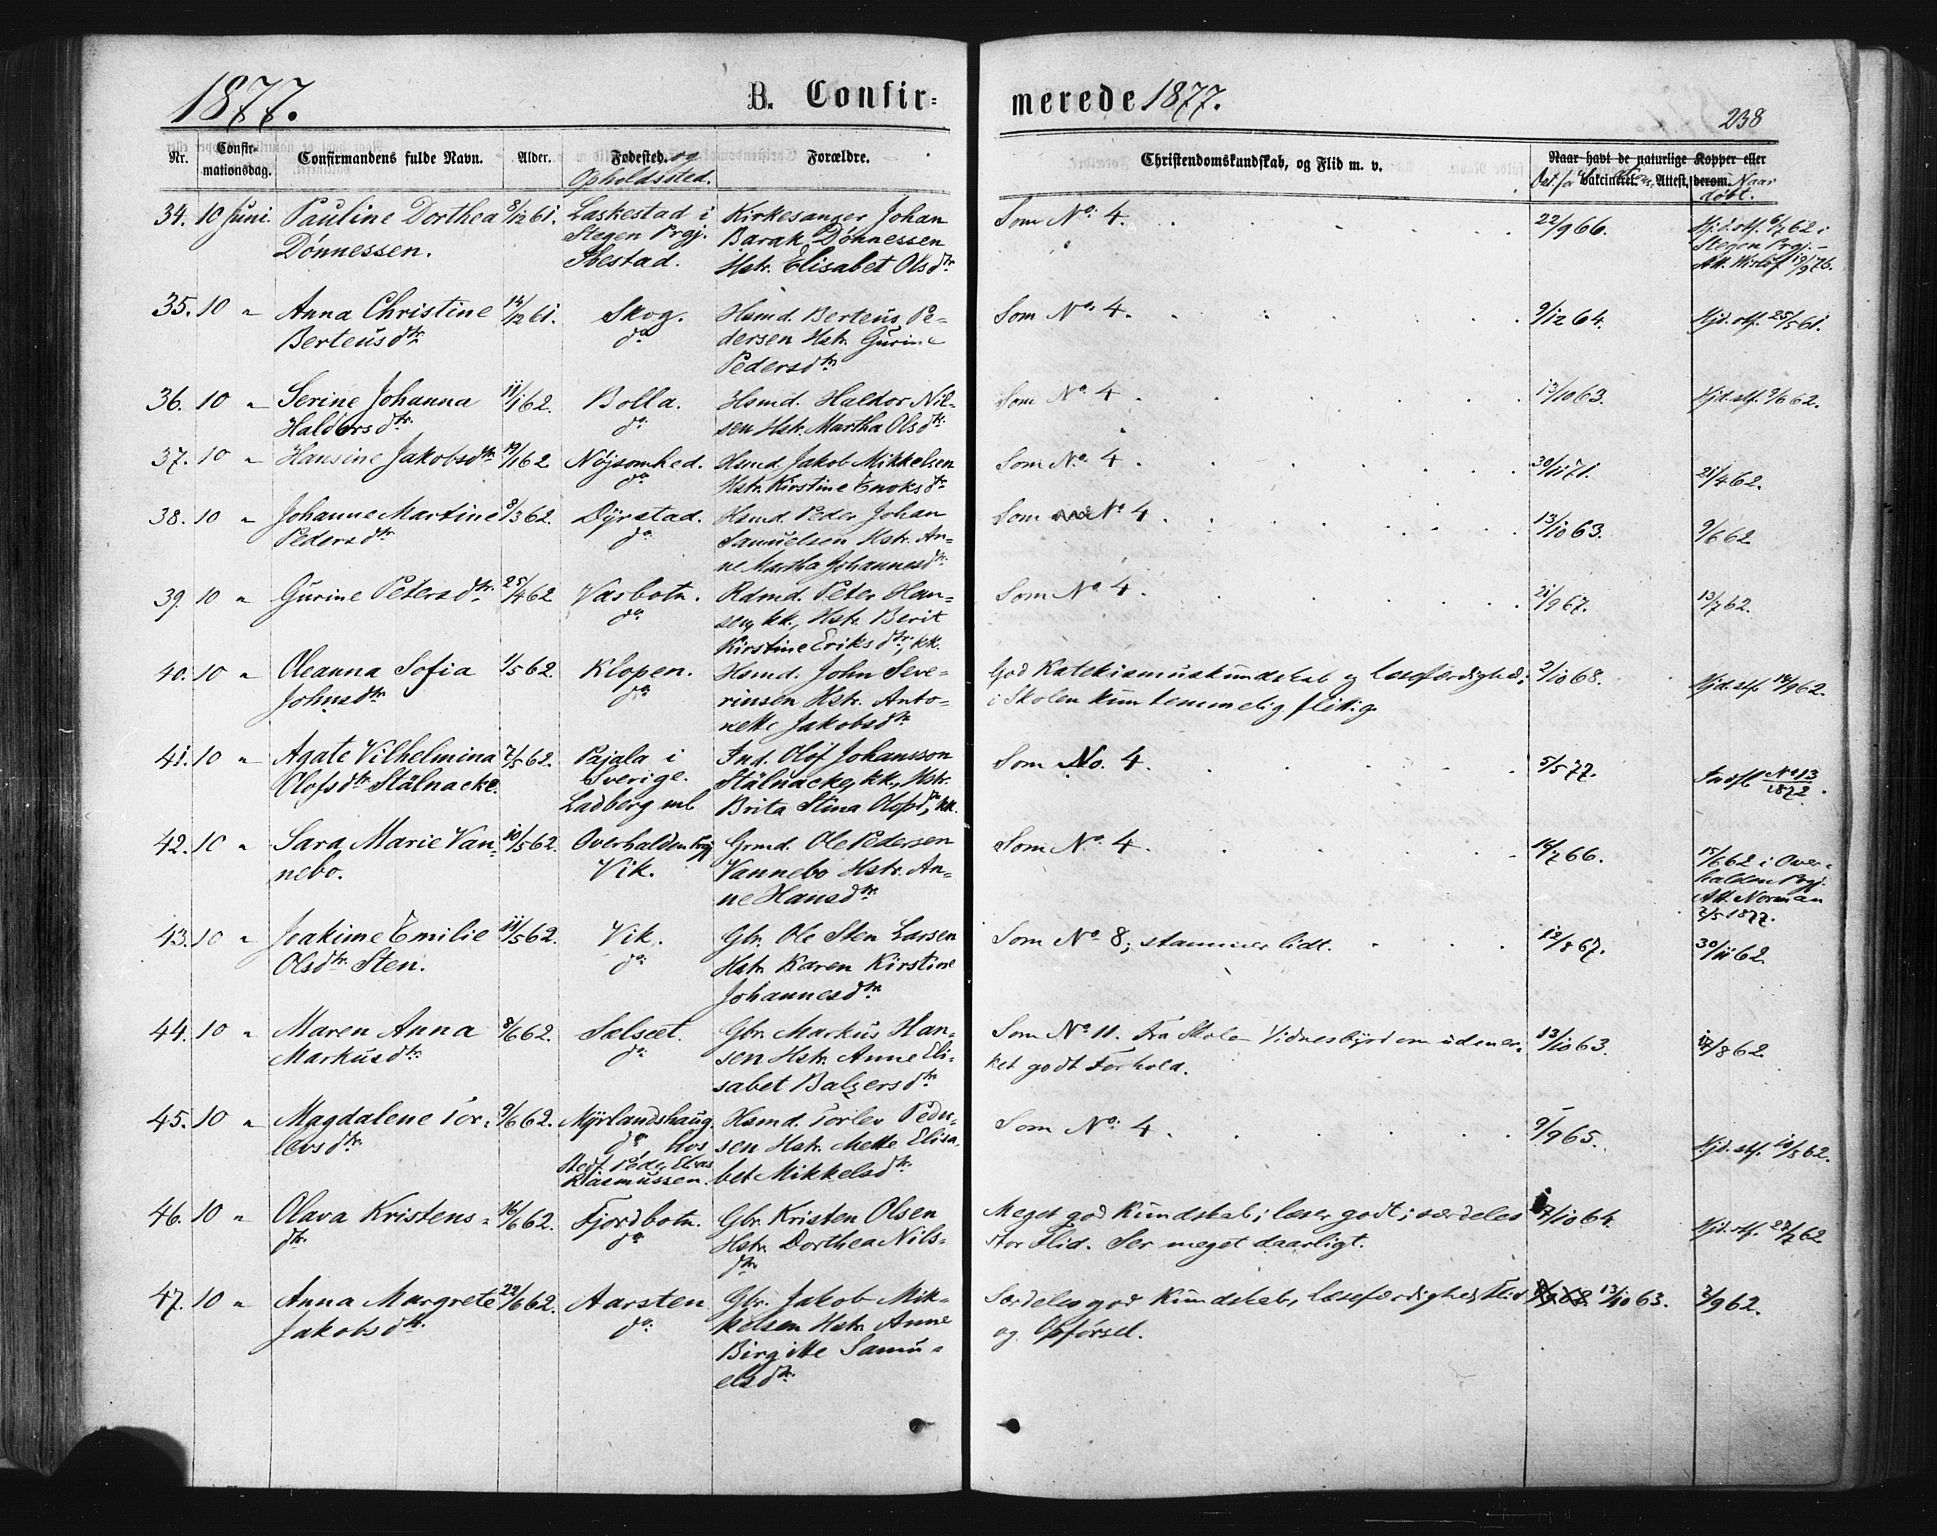 1877. B. Confir- merede 1877.
238
Nr. Confir-mationsdag. Confirmandens fulde Navn. Alder. Fødested. og Opholdssted. Forældre. Christendomskundskab, og Flid m. v. Naar havt de naturlige Kopper eller Vakcineret. Attest derom. Naar døbt.
34. 10 Juni. Pauline Dorthea 8/12 61. Laskestad i Kirkesanger Johan Som No. 4. 22/9 66. Hjd. stf. 6/7 62 i
Dönnessen. Stegen Prgj. Barak Dönnessen Stegen Prgj.
Ibestad. Hstr. Elisabet Olsdtr.
35. 10 " Anna Christine 14/12 61. Skog. Hsmd. Berteus Pe- Som No. 4. 9/12 64. Hjd. stf. 25/5 61.
Berteusdtr. do. dersen Hstr. Gurine
Pedersdtr.
36. 10 " Serine Johanna 11/1 62. Bolla. Hsmd. Haldor Nil- Som No. 4. 13/10 63. Hjd. stf. 9/6 62.
Haldorsdtr. do. sen Hstr. Martha Olsdtr.
37. 10 " Hansine Jakobsdtr. 19/1 62 Nöjsomhed. Hsmd. Jakob Mikkelsen Som No. 4. 30/11 71. 21/4 62.
do. Hstr. Kirstine Enoksdtr.
38. 10 " Johanne Martine 8/3 62. Dyrstad. Hsmd. Peder Johan Som No 4. 13/10 63. 9/6 62
Pedersdtr. do. Samuelsen Hstr. An-
ne Martha Johannesdtr.
39. 10 " Gurine Petersdtr. 25/4 62 Vasbotn. Rdmd. Peter Han- Som No 4. 21/9 67. 13/7 62.
do. sen, kk., Hstr. Berit
Kirstine Eriksdtr., kk.
40. 10 " Oleanna Sofia 1/5 62 Klopen. Hsmd. John Seve- God Katekismuskundskab og Læsefærdighed; 2/10 68. Hjd. stf. 14/9 62.
Johnsdtr. do. rinsen Hstr. Anto- i Skolen kun temmelig flittig.
nette Jakobsdtr.
41. 10 " Agate Vilhelmina 7/5 62. Pajala i Ind. Olof Johansson Som No. 4. 5/5 77. Indfl. No 13
Olofsdtr. Stälnacke. Sverige. Stälnacke, kk., Hstr. 1872.
Ladberg Brita Stina Olofsd., kk.
42. 10 " Sara Marie Van- 10/5 62. Overhalden Prgj. Grmd. Ole Pedersen Som No. 4. 14/7 66. 15/6 62 i Over-
nebo. Vik. Vannebo Hstr. An- halden Prgj.
ne Hansdtr. Att. Norman
2/5 1877.
43. 10 " Joakime Emilie 11/5 62. Vik. Gbr. Ole Sten Larsen Som No. 8; stammer lidt. 12/8 67. 30/11 62.
Olsdtr. Sten. do. Hstr. Karen Kirstine
Johannesdtr.
44. 10 " Maren Anna 8/6 62. Salsæt. Gbr. Markus Han- Som No. 11. Fra Skolen Vidnesbyrd om udmær- 13/10 63.
Markusdtr. do. sen Hstr. Anne Eli- ket godt Forhold.
sabet Balzersdtr.
45. 10 " Magdalene Tor- 9/6 62. Myrlandshaug Hsmd. Torlev Peder- Som No. 4. 9/9 65. Hjd. stf.
levsdtr. do, hos sen Hstr. Mette Elisa-
Peder Elias bet Mikkelsdtr.
Rasmussen.
46. 10 " Olava Kristens- 16/6 62. Fjordbotn. Gbr. Kristen Olsen Meget god Kundskab; læser godt; særdeles 7/10 64. Hjd. stf. 27/7 62.
dtr. do. Hstr. Dorthea Nils- stor Flid. Ser meget daarligt.
dtr.
47. 10 " Anna Margrete 22/6 62. Aarsten Gbr. Jakob Mik- Særdeles god Kundskab, Læsefærdighed, Flid 13/10 63. 3/9 62.
Jakobsdtr. do. kelsen Hstr. Anne og Opførsel.
Birgitte Samu-
elsdtr.